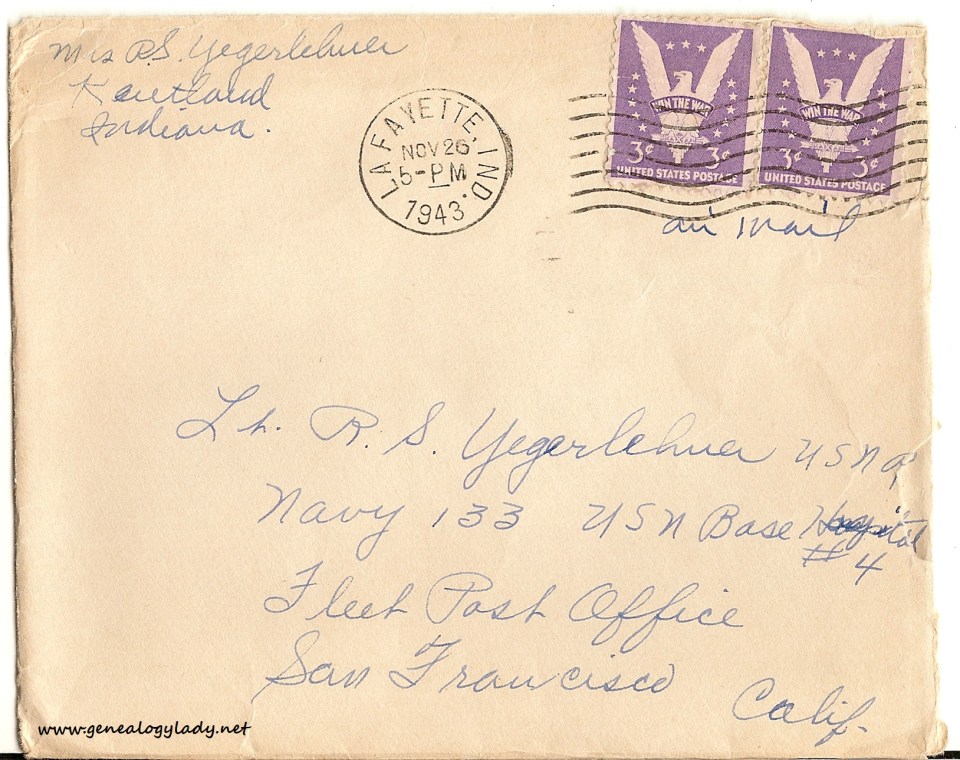 Mrs R.S. Yegerlehner
Kentland
Indiana.
LAFAYETTE, IND.
NOV 26
5-PM
1943
WIN THE WAR
3¢ 3¢
UNITED STATES POSTAGE
WIN THE WAR
3¢ 3¢
UNITED STATES POSTAGE
air mail
Lt. R. S. Yegerlehner USNR
Navy 133 USN Base Hospital
# 4
Fleet Post Office
San Francisco
Calif.
www.genealogylady.net